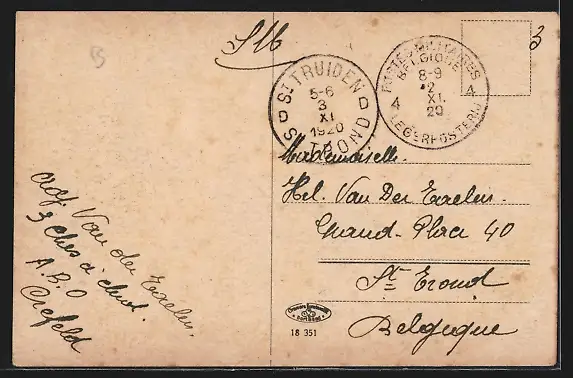 SM
3
ST TRUIDEN
5-6
3
XI
1920
ST TROND
POSTES MILITAIRES
BELGIQUE
8-9
2
XI
20
4 4
LEGERPOSTERIJ
Mademoiselle.
Hel. Van Der Exelen.
Grand-Place 40
St Trond
Belgique
Adj. Van der Exelen.
3 Ches à cheval.
A.B.O
Crefeld
18 351